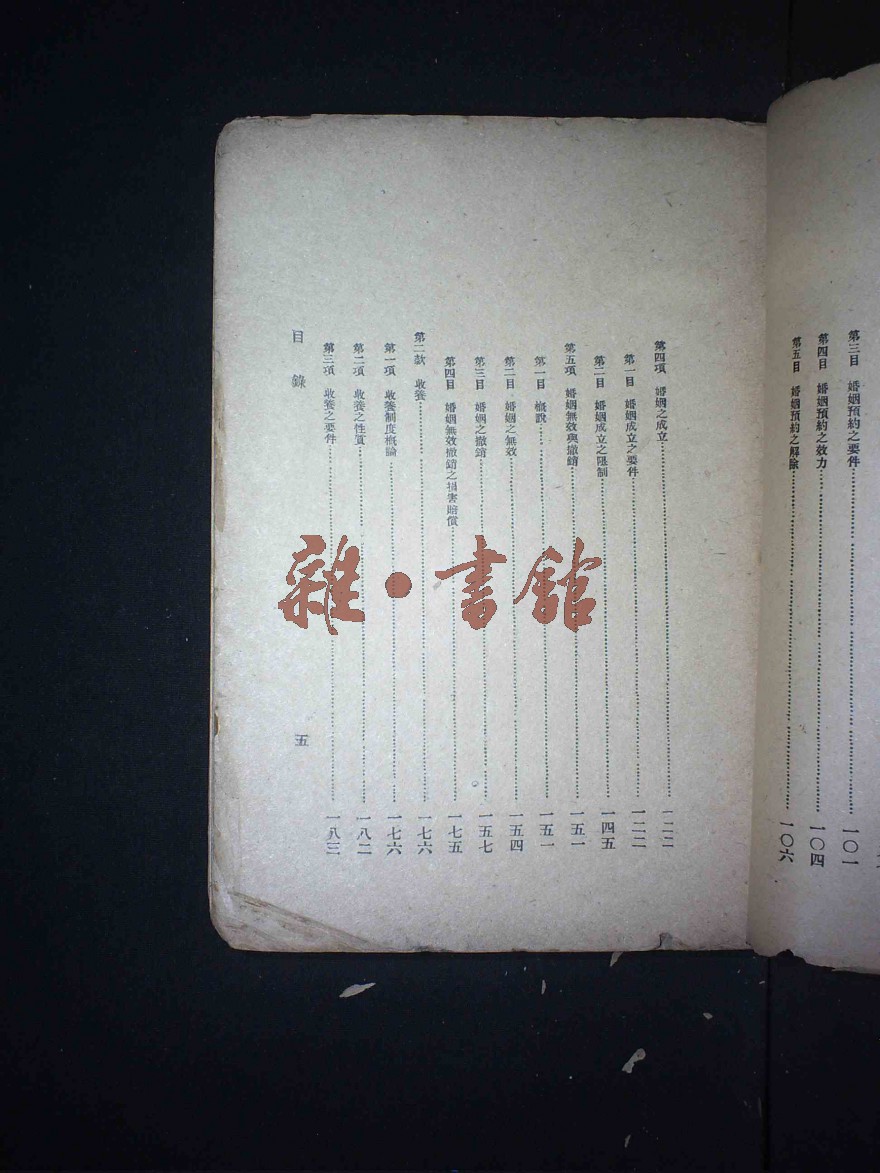 第三目 婚姻預約之要件 一〇一
第四目 婚姻預約之效力 一〇四
第五目 婚姻預約之解除 一〇六
第四項 婚姻之成立 一二二
第一目 婚姻成立之要件 一二二
第二目 婚姻成立之限制 一四五
第五項 婚姻無效與撤銷 一五一
第一目 概說 一五一
第二目 婚姻之無效 一五四
第三目 婚姻之撤銷 一五七
第四目 婚姻無效撤銷之損害賠償 一七五
第二款 收養 一七六
第一項 收養制度概論 一七六
第二項 收養之性質 一八二
第三項 收養之要件 一八三
目錄 五
雜·書館